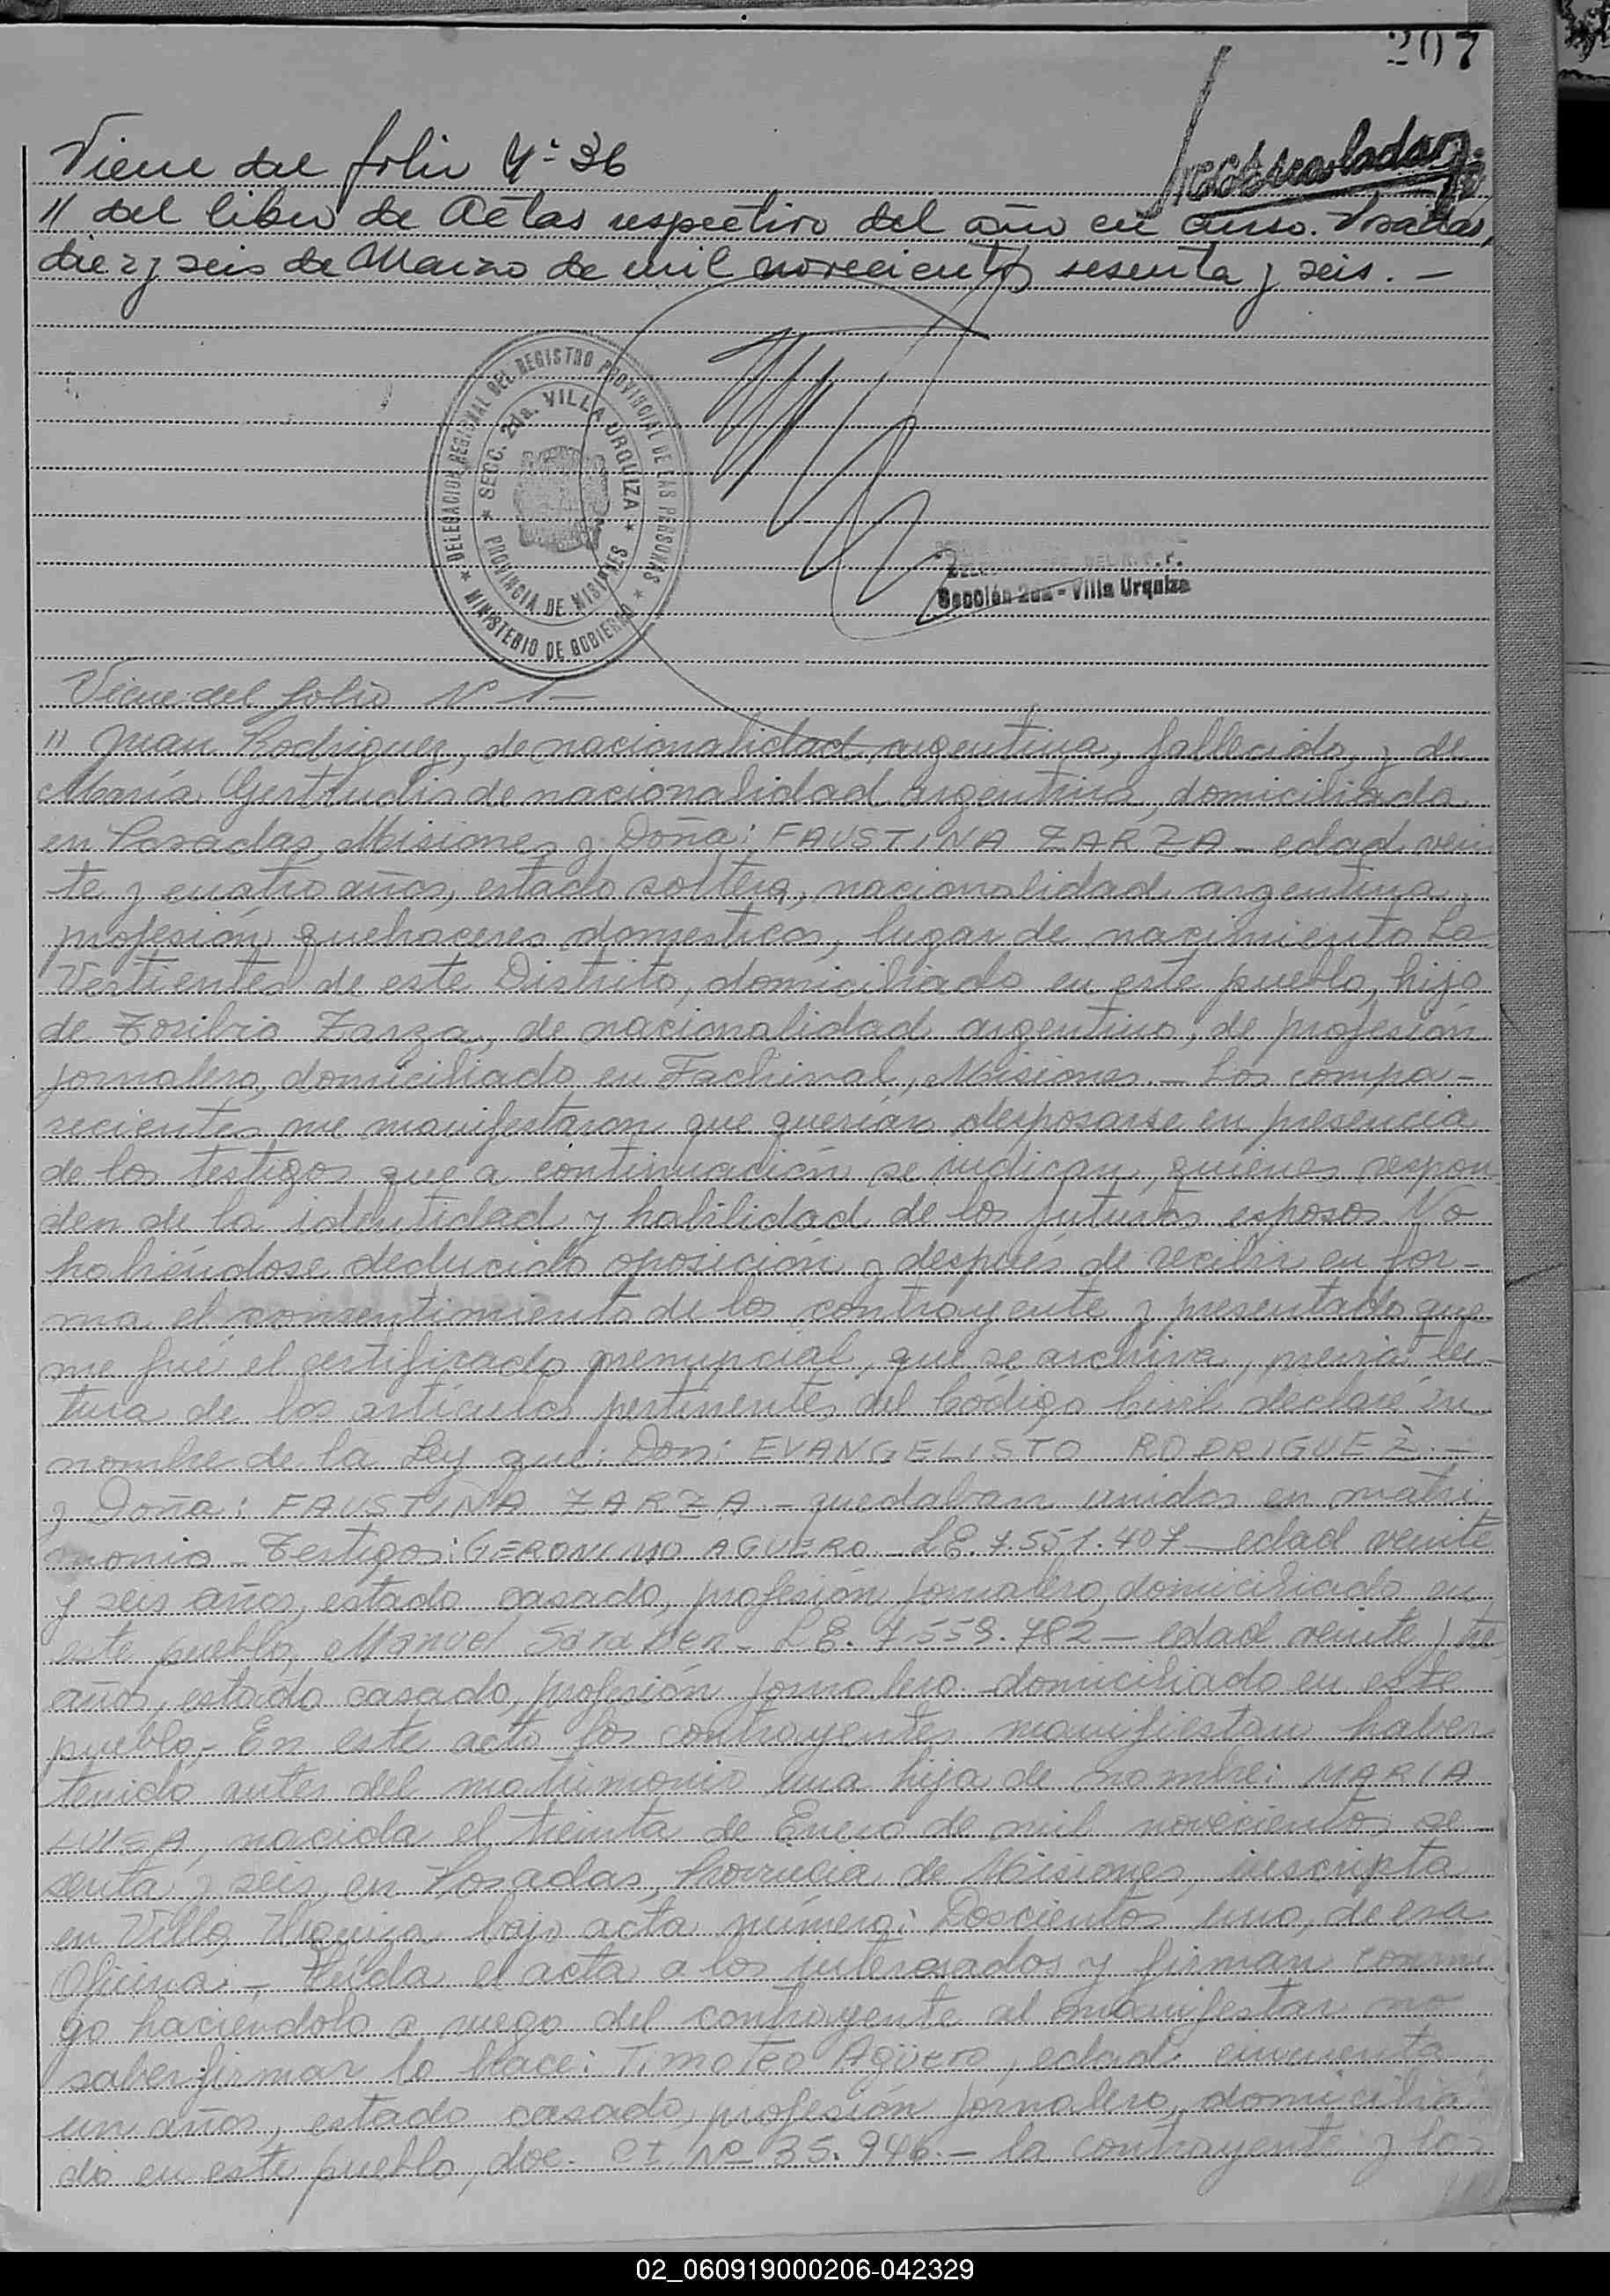 207
Viene del folio Nº 36
// del libro de Actas respectivo del año en curso. Posadas,
diez y seis de Marzo de mil novecientos sesenta y seis. —
DELEGACION REGIONAL DEL REGISTRO PROVINCIAL DE LAS PERSONAS
MINISTERIO DE GOBIERNO
SECC. 2da. VILLA URQUIZA
PROVINCIA DE MISIONES
DEL R. P. P.
Sección 2da - Villa Urquiza
Viene del folio Nº 1 —
// Juan Rodriguez, de nacionalidad argentina, fallecido, y de
María Gertrudis de nacionalidad argentina, domiciliada
en Posadas, Misiones y Doña: FAUSTINA ZARZA - edad vein
te y cuatro años, estado soltera, nacionalidad argentina,
profesión quehaceres domesticos, lugar de nacimiento La
Vertientes de este Distrito, domiciliado en este pueblo, hija
de Toribio Zarza, de nacionalidad argentino, de profesión
jornalero, domiciliado en Fachinal, Misiones. - Los compa-
recientes me manifestaron que querían desposarse en presencia
de los testigos que a continuación se indican, quienes respon
den de la identidad y habilidad de los futuros esposos. No
habiéndose deducido oposición y después de recibir en for-
ma el consentimiento de los contrayente y presentado que
me fué el certificado prenupcial, que se archiva, previa lec-
tura de los artículos pertinentes del Código Civil declaré en
nombre de la Ley que: Don: EVANGELISTO RODRIGUEZ. -
y Doña: FAUSTINA ZARZA - quedaban unidos en matri
monio - Testigos: GERONIMO AGUERO - L.E. 7.551.407 - edad veinte
y seis años, estado casado, profesión jornalero, domiciliado en
este pueblo, Manuel - L.E. 7.559.782 - edad veinte y tre
años, estado casado, profesión jornalero domiciliado en este
pueblo.- En este acto los contrayentes manifiestan haber
tenido antes del matrimonio una hija de nombre: MARIA
LUISA, nacida el treinta de Enero de mil novecientos se
senta y seis, en Posadas, Provincia de Misiones, inscripta
en Villa Urquiza bajo acta número: Doscientos uno, de esa
Oficina. - Leída el acta a los interesados y firman conmi
go haciéndolo a ruego del contrayente al manifestar no
saber firmar lo hace: Timoteo Agüero, edad: cincuenta
un años, estado casado, profesión jornalero, domicilia
do en este pueblo, doc. CI. Nº 35.946. - la contrayente y los
02_060919000206-042329